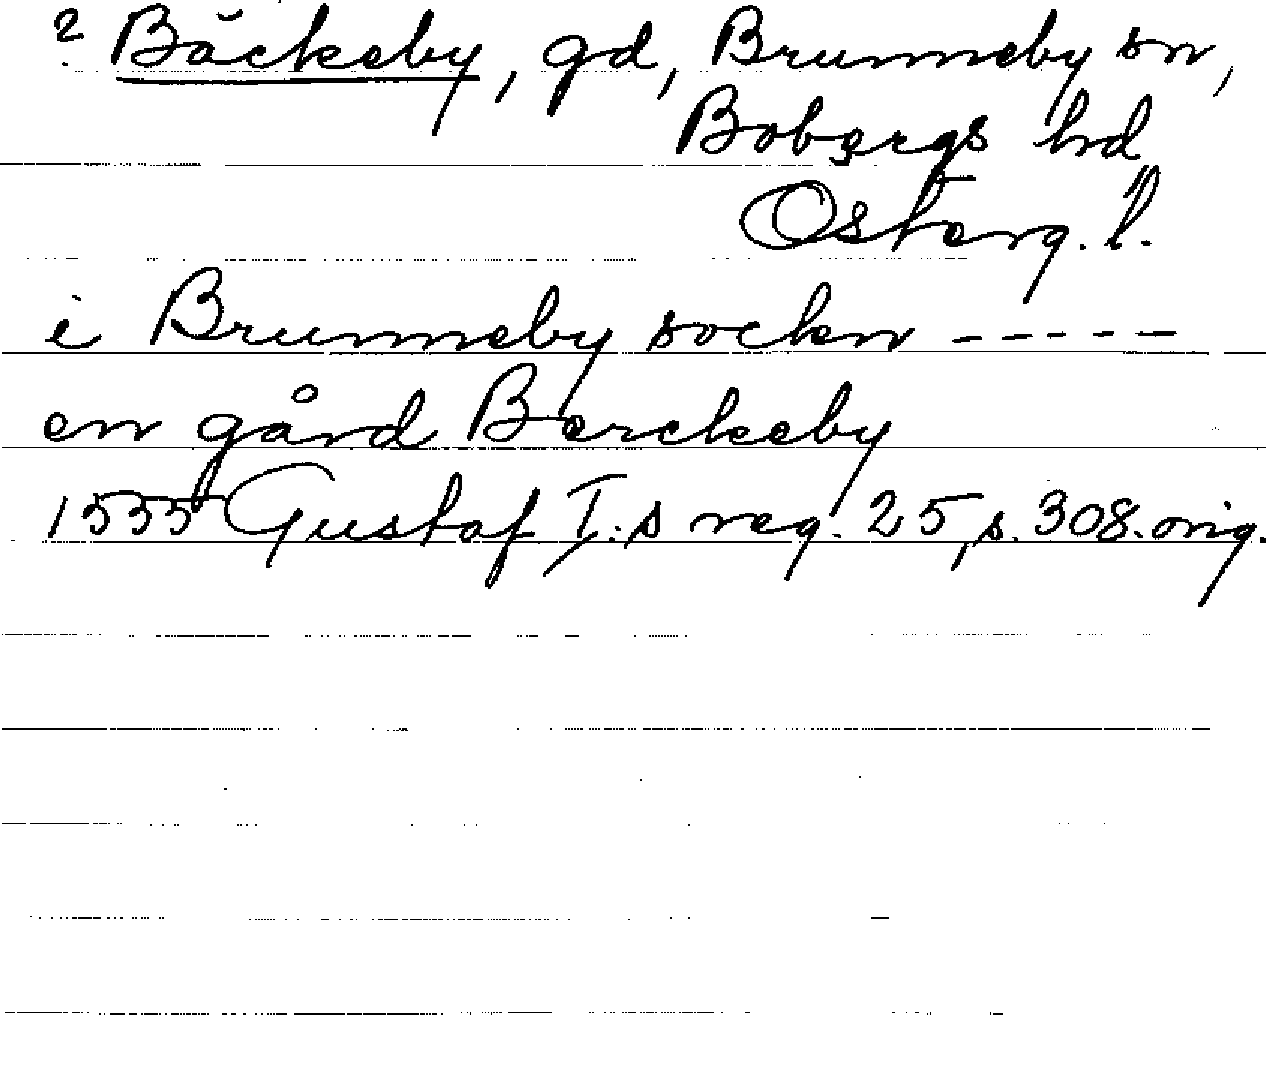 ? Bäckeby, gd, Brunneby sn,
Bobergs hd
Österg. l.
i Brunneby sockn - - - - -
en gård Berckeby
1555 Gustaf I:s reg. 25, s. 308. orig.